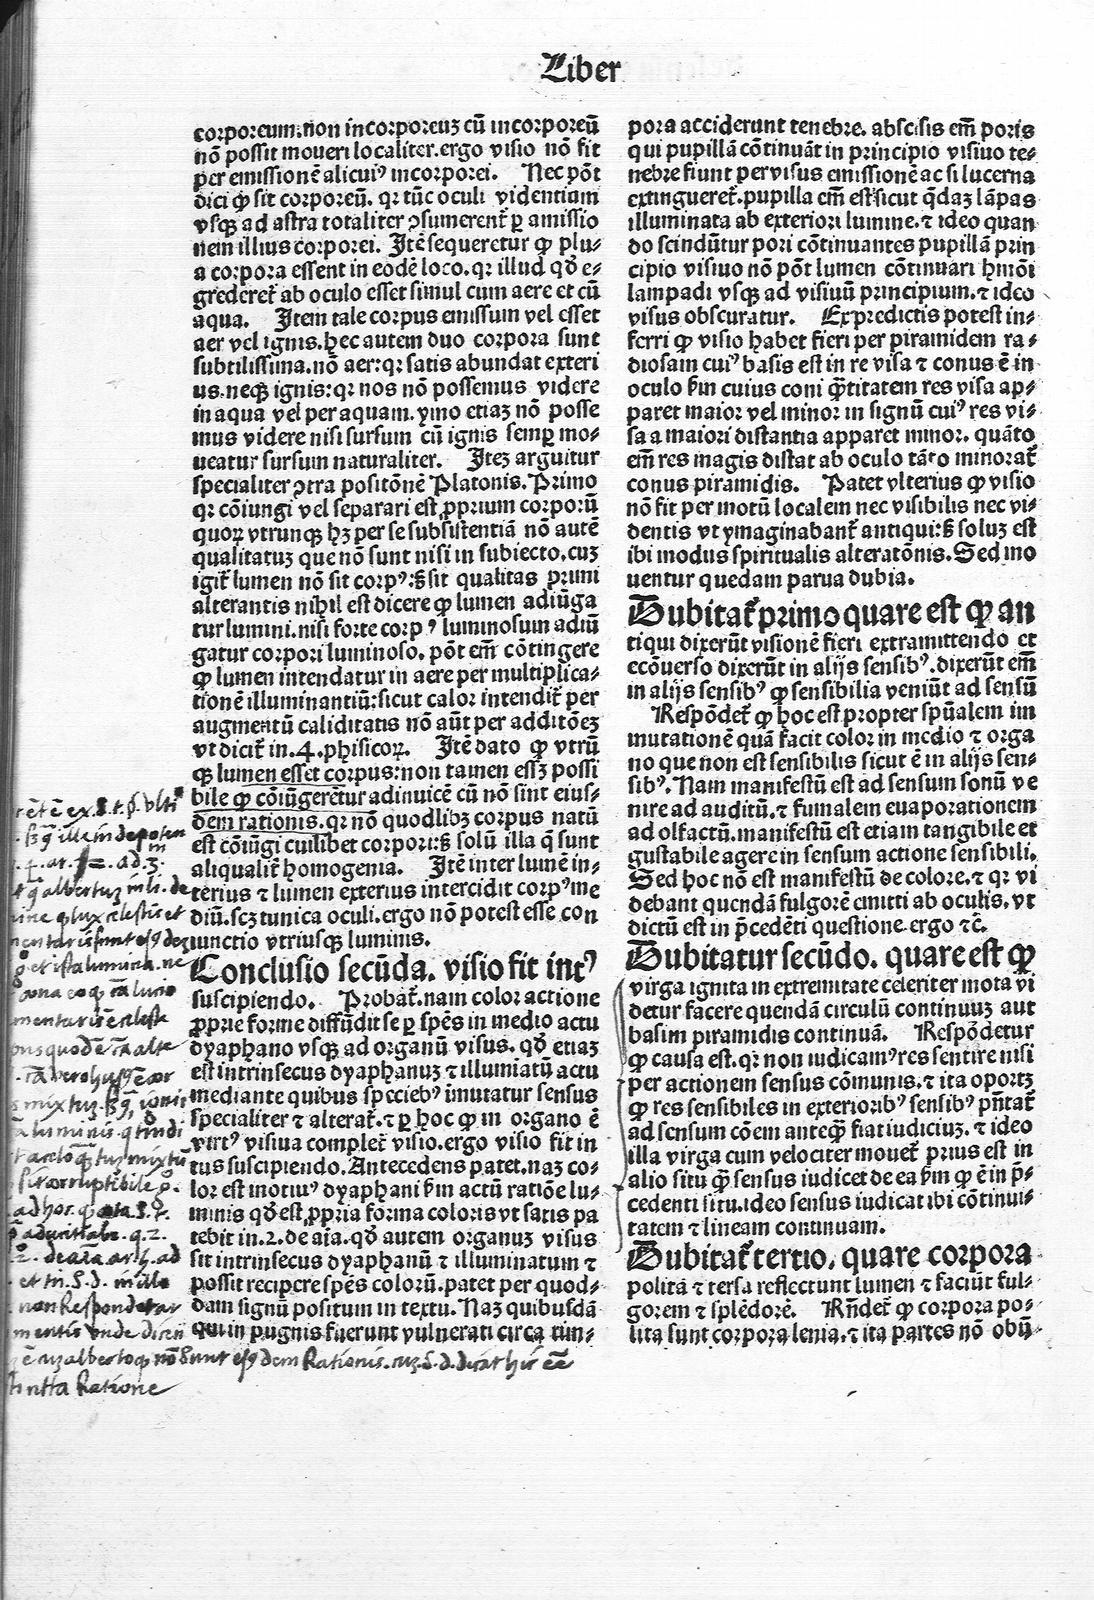 Liber
corporeum. non incorporeuʒ cū incorporeū
nō possit moueri localiter. ergo visio nō fit
per emissionē alicuiꝰ incorporei. Nec pōt
dici ꝙ sit corporeū. qꝛ tūc oculi videntium
vsqꝫ ad astra totaliter ↄsumerent̄ ꝑ amissio
nem illius corporei. Itē sequeretur ꝙ plu⸗
a corpora essent in eodē loco. qꝛ illud qđ e⸗
grederet̄ ab oculo esset simul cum aere et cū
aqua. Item tale corpus emissum vel esset
aer vel ignis. hec autem duo corpora sunt
subtilissima. nō aer: qꝛ satis abundat exteri
us. neqꝫ ignis: qꝛ nos nō possemus videre
in aqua vel per aquam. ymo etiaʒ nō posse
mus videre nisi sursum cū ignis semꝑ mo⸗
ueatur sursum naturaliter. Iteʒ arguitur
specialiter ↄtra positōnē Platonis. Primo
qꝛ cōiungi vel separari est ꝓprium corporū
quoꝝ vtrunqꝫ hʒ per se subsistentiā nō autē
qualitatuʒ que nō sunt nisi in subiecto. cuʒ
igit̄ lumen nō sit corpꝰ: sʒ sit qualitas primi
alterantis nihil est dicere ꝙ lumen adiūga
tur lumini. nisi forte corpꝰ luminosum adiū
gatur corpori luminoso. pōt em̄ cōtingere
ꝙ lumen intendatur in aere per multiplica⸗
tionē illuminantiū: sicut calor intendit̄ per
augmentū caliditatis nō aūt per additōeʒ
vt dicit̄ in .4. phisicoꝝ. Itē dato ꝙ vtrū
qꝫ lumen esset corpus: non tamen essʒ possi
bile ꝙ cōiūgeretur adinuicē cū nō sint eius⸗
dem rationis. qꝛ nō quodlibʒ corpus natū
est cōiūgi cuilibet corpori: sʒ solū illa q̄ sunt
aliqualit̄ homogenia. Itē inter lumē in⸗
terius ⁊ lumen exterius intercidit corpꝰ me
diū. scʒ tunica oculi. ergo nō potest esse con
iunctio vtriusqꝫ luminis.
Conclusio secūda. visio fit intꝰ
suscipiendo. Probat̄. nam color actione
ꝓprie forme diffūdit se ꝑ spēs in medio actu
dyaphano vsqꝫ ad organū visus. qđ etiaʒ
est intrinsecus dyaphanuʒ ⁊ illumiatū actu
mediante quibus speciebꝰ imutatur sensus
specialiter ⁊ alterat̄. ⁊ ꝑ hoc ꝙ in organo ē
virtꝰ visiua complet̄ visio. ergo visio fit in
tus suscipiendo. Antecedens patet. naʒ co⸗
lor est motiuꝰ dyaphani fm̄ actū ratiōe lu⸗
minis qđ est ꝓpria forma coloris vt satis pa
tebit in .2. de aīa. qđ autem organuʒ visus
sit intrinsecus dyaphanū ⁊ illuminatum ⁊
possit recipere spēs colorū. patet per quod⸗
dam signū positum in textu. Naʒ quibusdā
qui in pugnis fuerunt vulnerati circa tim⸗
pora acciderunt tenebre. abscisis em̄ poris
qui pupillā cōtinuāt in principio visiuo te⸗
nebre fiunt per visus emissionē ac si lucerna
extingueret̄. pupilla em̄ est sicut q̄daʒ lāpas
illuminata ab exteriori lumine. ⁊ ideo quan
do scindūtur pori cōtinuantes pupillā prin
cipio visiuo nō pōt lumen cōtinuari hm̄oi
lampadi vsqꝫ ad visiuū principium. ⁊ ideo
visus obscuratur. Ex predictis potest in⸗
ferri ꝙ visio habet fieri per piramidem ra⸗
diosam cuiꝰ basis est in re visa ⁊ conus ē in
oculo fm̄ cuius coni q̄titatem res visa ap⸗
paret maior vel minor in signū cuiꝰ res vi⸗
sa a maiori distantia apparet minor. quāto
em̄ res magis distat ab oculo tāto minorat̄
conus piramidis. Patet vlterius ꝙ visio
nō fit per motū localem nec visibilis nec vi⸗
dentis vt ymaginabant̄ antiqui: sʒ soluʒ est
ibi modus spiritualis alteratōnis. Sed mo
uentur quedam parua dubia.
Dubitat̄ primo quare est ꝙ an
tiqui dixerūt visionē fieri extramittendo et
ecōuerso dixerūt in alijs sensibꝰ. dixerūt em̄
in alijs sensibꝰ ꝙ sensibilia veniūt ad sensū
Respōdet̄ ꝙ hoc est propter spūalem im
mutationē quā facit color in medio ⁊ orga
no que non est sensibilis sicut ē in alijs sen⸗
sibꝰ. Nam manifestū est ad sensum sonū ve
nire ad auditū. ⁊ fumalem euaporationem
ad olfactū. manifestū est etiam tangibile et
gustabile agere in sensum actione sensibili.
Sed hoc nō est manifestū de colore. ⁊ qꝛ vi
debant quendā fulgorē emitti ab oculis. vt
dictū est in p̄cedēti questione. ergo ⁊c̄.
Dubitatur secūdo. quare est ꝙ
virga ignita in extremitate celeriter mota vi
detur facere quendā circulū continuuʒ aut
basim piramidis continuā. Respōdetur
ꝙ causa est. qꝛ non iudicamꝰ res sentire nisi
per actionem sensus cōmunis. ⁊ ita oportʒ
ꝙ res sensibiles in exterioribꝰ sensibꝰ pn̄tat̄
ad sensum cōem anteqꝫ fiat iudiciuʒ. ⁊ ideo
illa virga cum velociter mouet̄ prius est in
alio situ q̄ sensus iudicet de ea fm̄ ꝙ ē in p̄⸗
cedenti situ. ideo sensus iudicat ibi cōtinui⸗
tatem ⁊ lineam continuam.
Dubitat̄ tertio. quare corpora
polita ⁊ tersa reflectunt lumen ⁊ faciūt ful⸗
gorem ⁊ splēdorē. Rn̄det̄ ꝙ corpora po⸗
lita sunt corpora lenia. ⁊ ita partes nō obū⸗